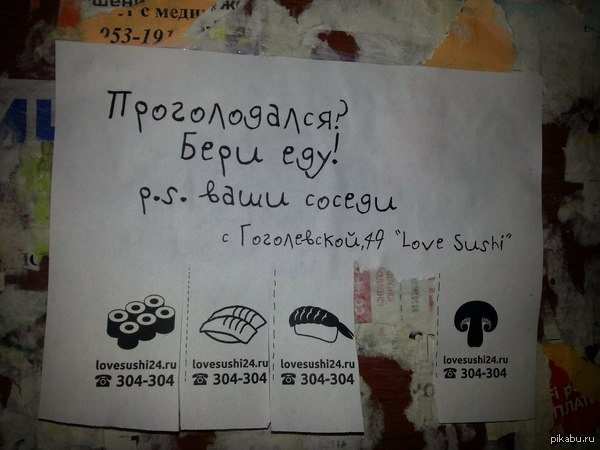 с меди
253-19
Проголодался?
Бери еду!
p.s. ваши соседи
с Гоголевской, 49 "Love Sushi"
lovesushi24.ru
☎ 304-304
lovesushi24.ru
☎ 304-304
lovesushi24.ru
☎ 304-304
lovesushi24.ru
☎ 304-304
pikabu.ru